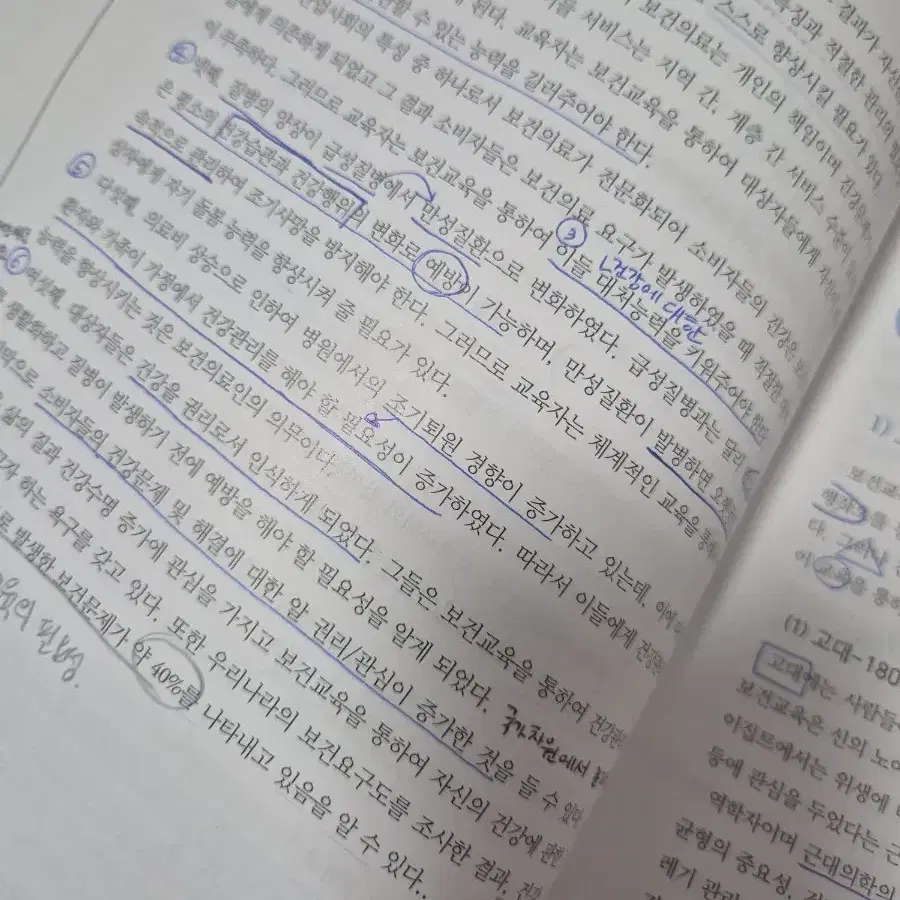 결과가 자신
특징과 적절한 관리와
스스로 향상시킬 필요가 있다.
보건의료는 개인의 책임이며 건강
서비스는 지역 간, 계층 간 서비스 수준이
된다. 교육자는 보건교육을 통하여 대상자들에게
할 수 있는 능력을 길러주어야 한다.
산업사회의 특성 중 하나로서 보건의료가 전문화되어 소비자들의 건강은
들에게 의존하게 되었고 그 결과 소비자들은 보건의료 요구가 발생하였을 때 적절한
이 부족하다. 그러므로 교육자는 보건교육을 통하여 ③ 이들 대처능력을 키워주어야 한다.
ㄴ건강에 대한
④ 넷째, 질병의 양상이 급성질병에서 만성질환으로 변화하였다. 급성질병과는 달리
은 평소의 건강습관과 건강행위의 변화로 예방이 가능하며, 만성질환이 발병하면 오랫동안
속적으로 관리하여 조기사망을 방지해야 한다. 그러므로 교육자는 체계적인 교육을 통해
상자에게 자기 돌봄 능력을 향상시켜 줄 필요가 있다.
⑤ 다섯째, 의료비 상승으로 인하여 병원에서의 조기퇴원 경향이 증가하고 있는데, 이에
환자와 가족이 가정에서 건강관리를 해야 할 필요성이 증가하였다. 따라서 이들에게 건강
능력을 향상시키는 것은 보건의료인의 의무이다.
⑥ 여섯째, 대상자들은 건강을 권리로서 인식하게 되었다. 그들은 보건교육을 통하여 건강
활하고 질병이 발생하기 전에 예방을 해야 할 필요성을 알게 되었다. 국가차원에서
으로 소비자들의 건강문제 및 해결에 대한 알 권리/관심이 증가한 것을 들 수 있
삶의 질과 건강수명 증가에 관심을 가지고 보건교육을 통하여 자신의 건강에 관한
하는 욕구를 갖고 있다. 또한 우리나라의 보건요구도를 조사한 결과, 건강
로 발생한 보건문제가 약 40%를 나타내고 있음을 알 수 있다.
1)
보건교
다. 그러나
이 교육을 통하
(1) 고대-180
고대에는 사람들
보건교육은 신의 노여
이집트에서는 위생에
등에 관심을 두었다는
역학자이며 근대의학의
균형의 중요성,
레기 관리